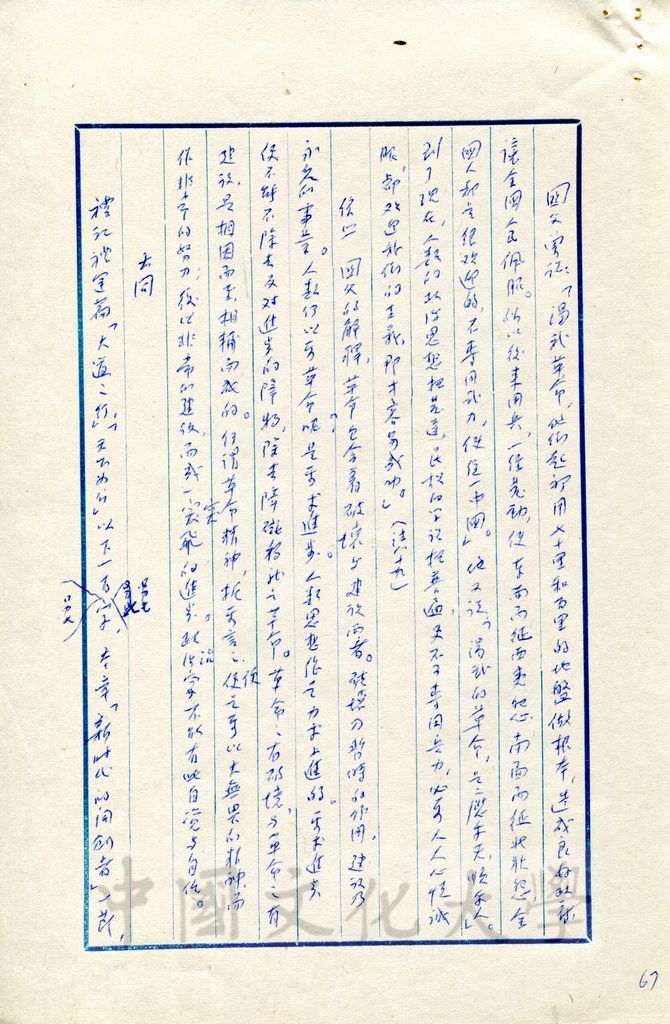 國父嘗説:「湯武革命,他們起初用七十里和百里的地盤做根本,造成良好政府,
讓全國人民佩服。所以後來用兵,一經発動,便東面而征西夷怨,南面而征北狄怨,全
國人都是很欢迎的,不專用武力,便統一中國」。他又說:「湯武的革命,是應乎天,順乎人」。
到了現在,人類的政治思想極発達,民权的学説極普遍,更不可專用兵力,必要人人心悦誠
服,都欢迎我們的主義,即才容易成功。」(註六十九)
依照 國父的解釋,革命包含着破壞与建設両者。破壞乃暫時的作用,建設乃
永久的事業。人類何以要革命呢?是要求進步。人類思想總是力求上進的。要求進步
便不能不除去反对進步的障物,除去障碍物就是革命。革命之有破壞,与革命之有
建設,是相因而至,相輔而成的。何謂革命精神,扼要言之,便是要以大無畏的精神而
作非常的努力;後以非常的建設,而成一雲飛的進步。政治家不能有此自覚与自信。
大同
禮記禮運篇「大道之行」,「天下為公」以下一百字,本章「新時代的開創者」一節,
中國文化大學
67